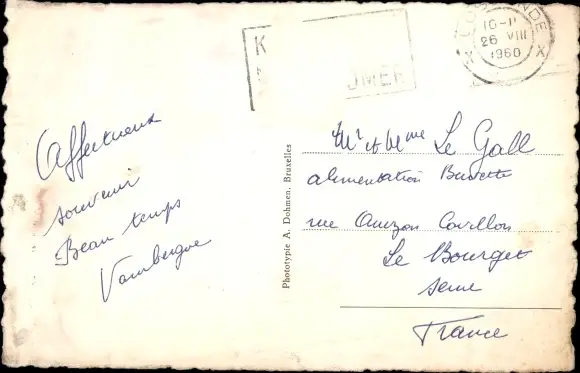 K
OMER
OSTENDE
10-11
26 VIII
1960
X X
Affectueux
souvenir
Beau temps
Vambergue
Phototype A. Dohmen, Bruxelles
Mr et Mme Le Gall
alimentation Buvette
rue
Le Bourget
Seine
France